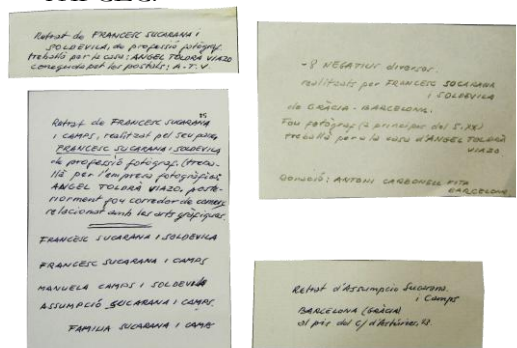 Retrat de FRANCESC SUCARANA i
SOLDEVILA, de professió fotògraf,
treballà per la casa: ANGEL TOLDRÀ VIAZO
coneguda pet les postals: A.T.V
Retrat de FRANCESC SUCARANA
i CAMPS, realitzat pel seu pare
FRANCESC SUCARANA i SOLDEVILA
de professió fotògraf. (treba-
llà per l'empresa fotogràfica
ANGEL TOLDRÀ VIAZO, poste-
riorment fou corredor de comerç
relacionat amb les arts gràfiques.
FRANCESC SUCARANA i SOLDEVILA
FRANCESC SUCARANA i CAMPS
MANUELA CAMPS i SOLDEVILA
ASSUMPCIÓ SUCARANA i CAMPS.
FAMILIA SUCARANA i CAMPS
-8 NEGATIUS diversos.
realitzats per FRANCESC SUCARANA
i SOLDEVILA
de GRÀCIA - BARCELONA.
Fou fotògraf (a principis del S. XX)
treballà per a la casa d'ÀNGEL TOLDRÀ
VIAZO
Donació: ANTONI CARBONELL PITA
BARCELONA
Retrat d'Assumpció Sucarana
i Camps
BARCELONA (GRÀCIA)
al pis del C/ d'Astúries,